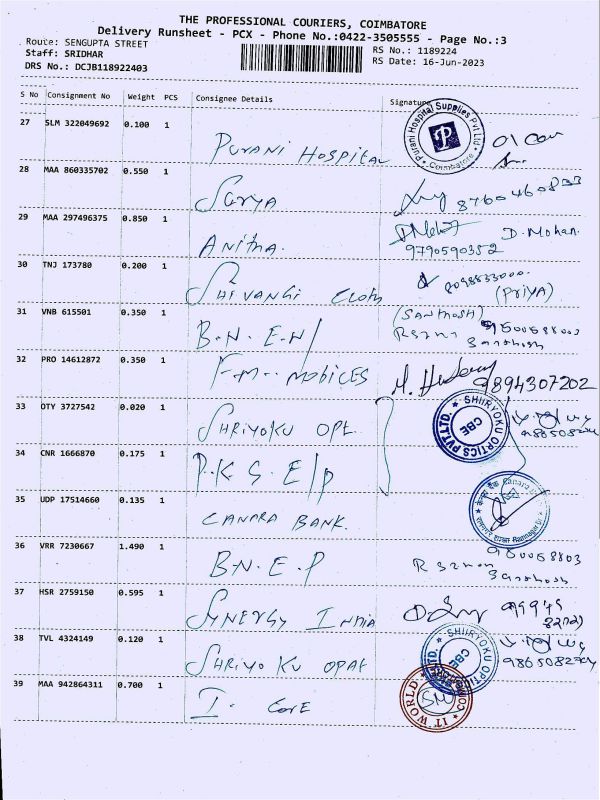 THE PROFESSIONAL COURIERS, COIMBATORE
Delivery Runsheet - PCX - Phone No.:0422-3505555 - Page No.:3
Route: SENGUPTA STREET
Staff: SRIDHAR
DRS No.: DCJB118922403
RS No.: 1189224
RS Date: 16-Jun-2023
S No Consignment No Weight PCS Consignee Details Signature
27 SLM 322049692 0.100 1 PURANI HOSPITAL
Purani Hospital Supplies Pvt Ltd
P
Coimbatore
28 MAA 860335702 0.550 1 SURYA
29 MAA 297496375 0.850 1 ANITHA. D. Mohan.
9790590352
30 TNJ 173780 0.200 1 SHIVANGI CLOTH
(PRIYA)
31 VNB 615501 0.350 1 B.N.E.N/ (SANTHOSH)
Santhosh
32 PRO 14612872 0.350 1 F.M.. MOBICES 9894307202
33 OTY 3727542 0.020 1 SHRIYOKU OPT
SHIRYOKU OPTICS PVT.LTD.
CBE
34 CNR 1666870 0.175 1 P.K.S.E/P
35 UDP 17514660 0.135 1 CANARA BANK.
36 VRR 7230667 1.490 1 B.N.E.P
Santhosh
37 HSR 2759150 0.595 1 SYNERGY INDIA
38 TVL 4324149 0.120 1 SHRIYO KU OPAT
CBE
39 MAA 942864311 0.700 1 I. CORE
IT WORLD